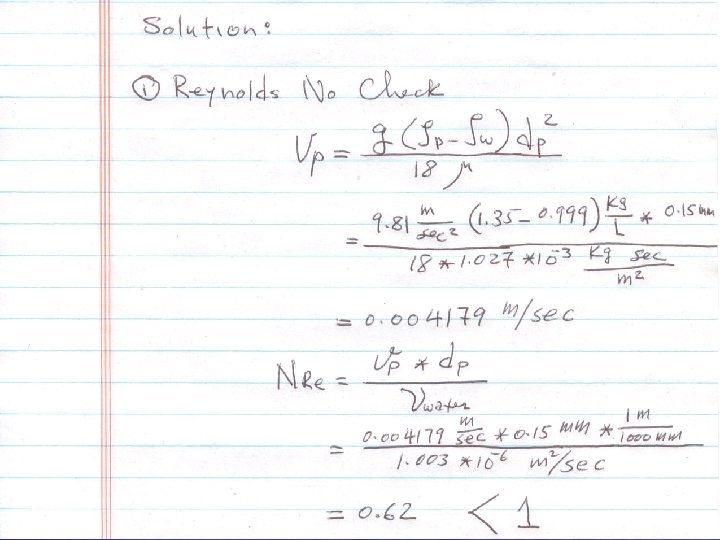 Solution:
① Reynolds No Check
Vp = g (ρp - ρw) dp² / 18 μ
= 9.81 m/sec² (1.35 - 0.999) Kg/L * 0.15 mm / 18 * 1.027 * 10⁻³ Kg sec/m²
= 0.004179 m/sec
NRe = Vp * dp / νwater
= 0.004179 m/sec * 0.15 mm * 1 m/1000 mm / 1.003 * 10⁻⁶ m²/sec
= 0.62 < 1